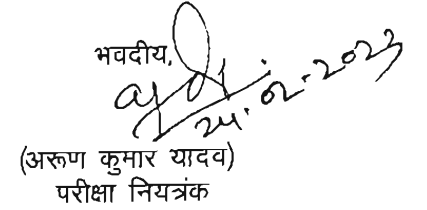 भवदीय,
24.02.2023
(अरूण कुमार यादव)
परीक्षा नियत्रंक